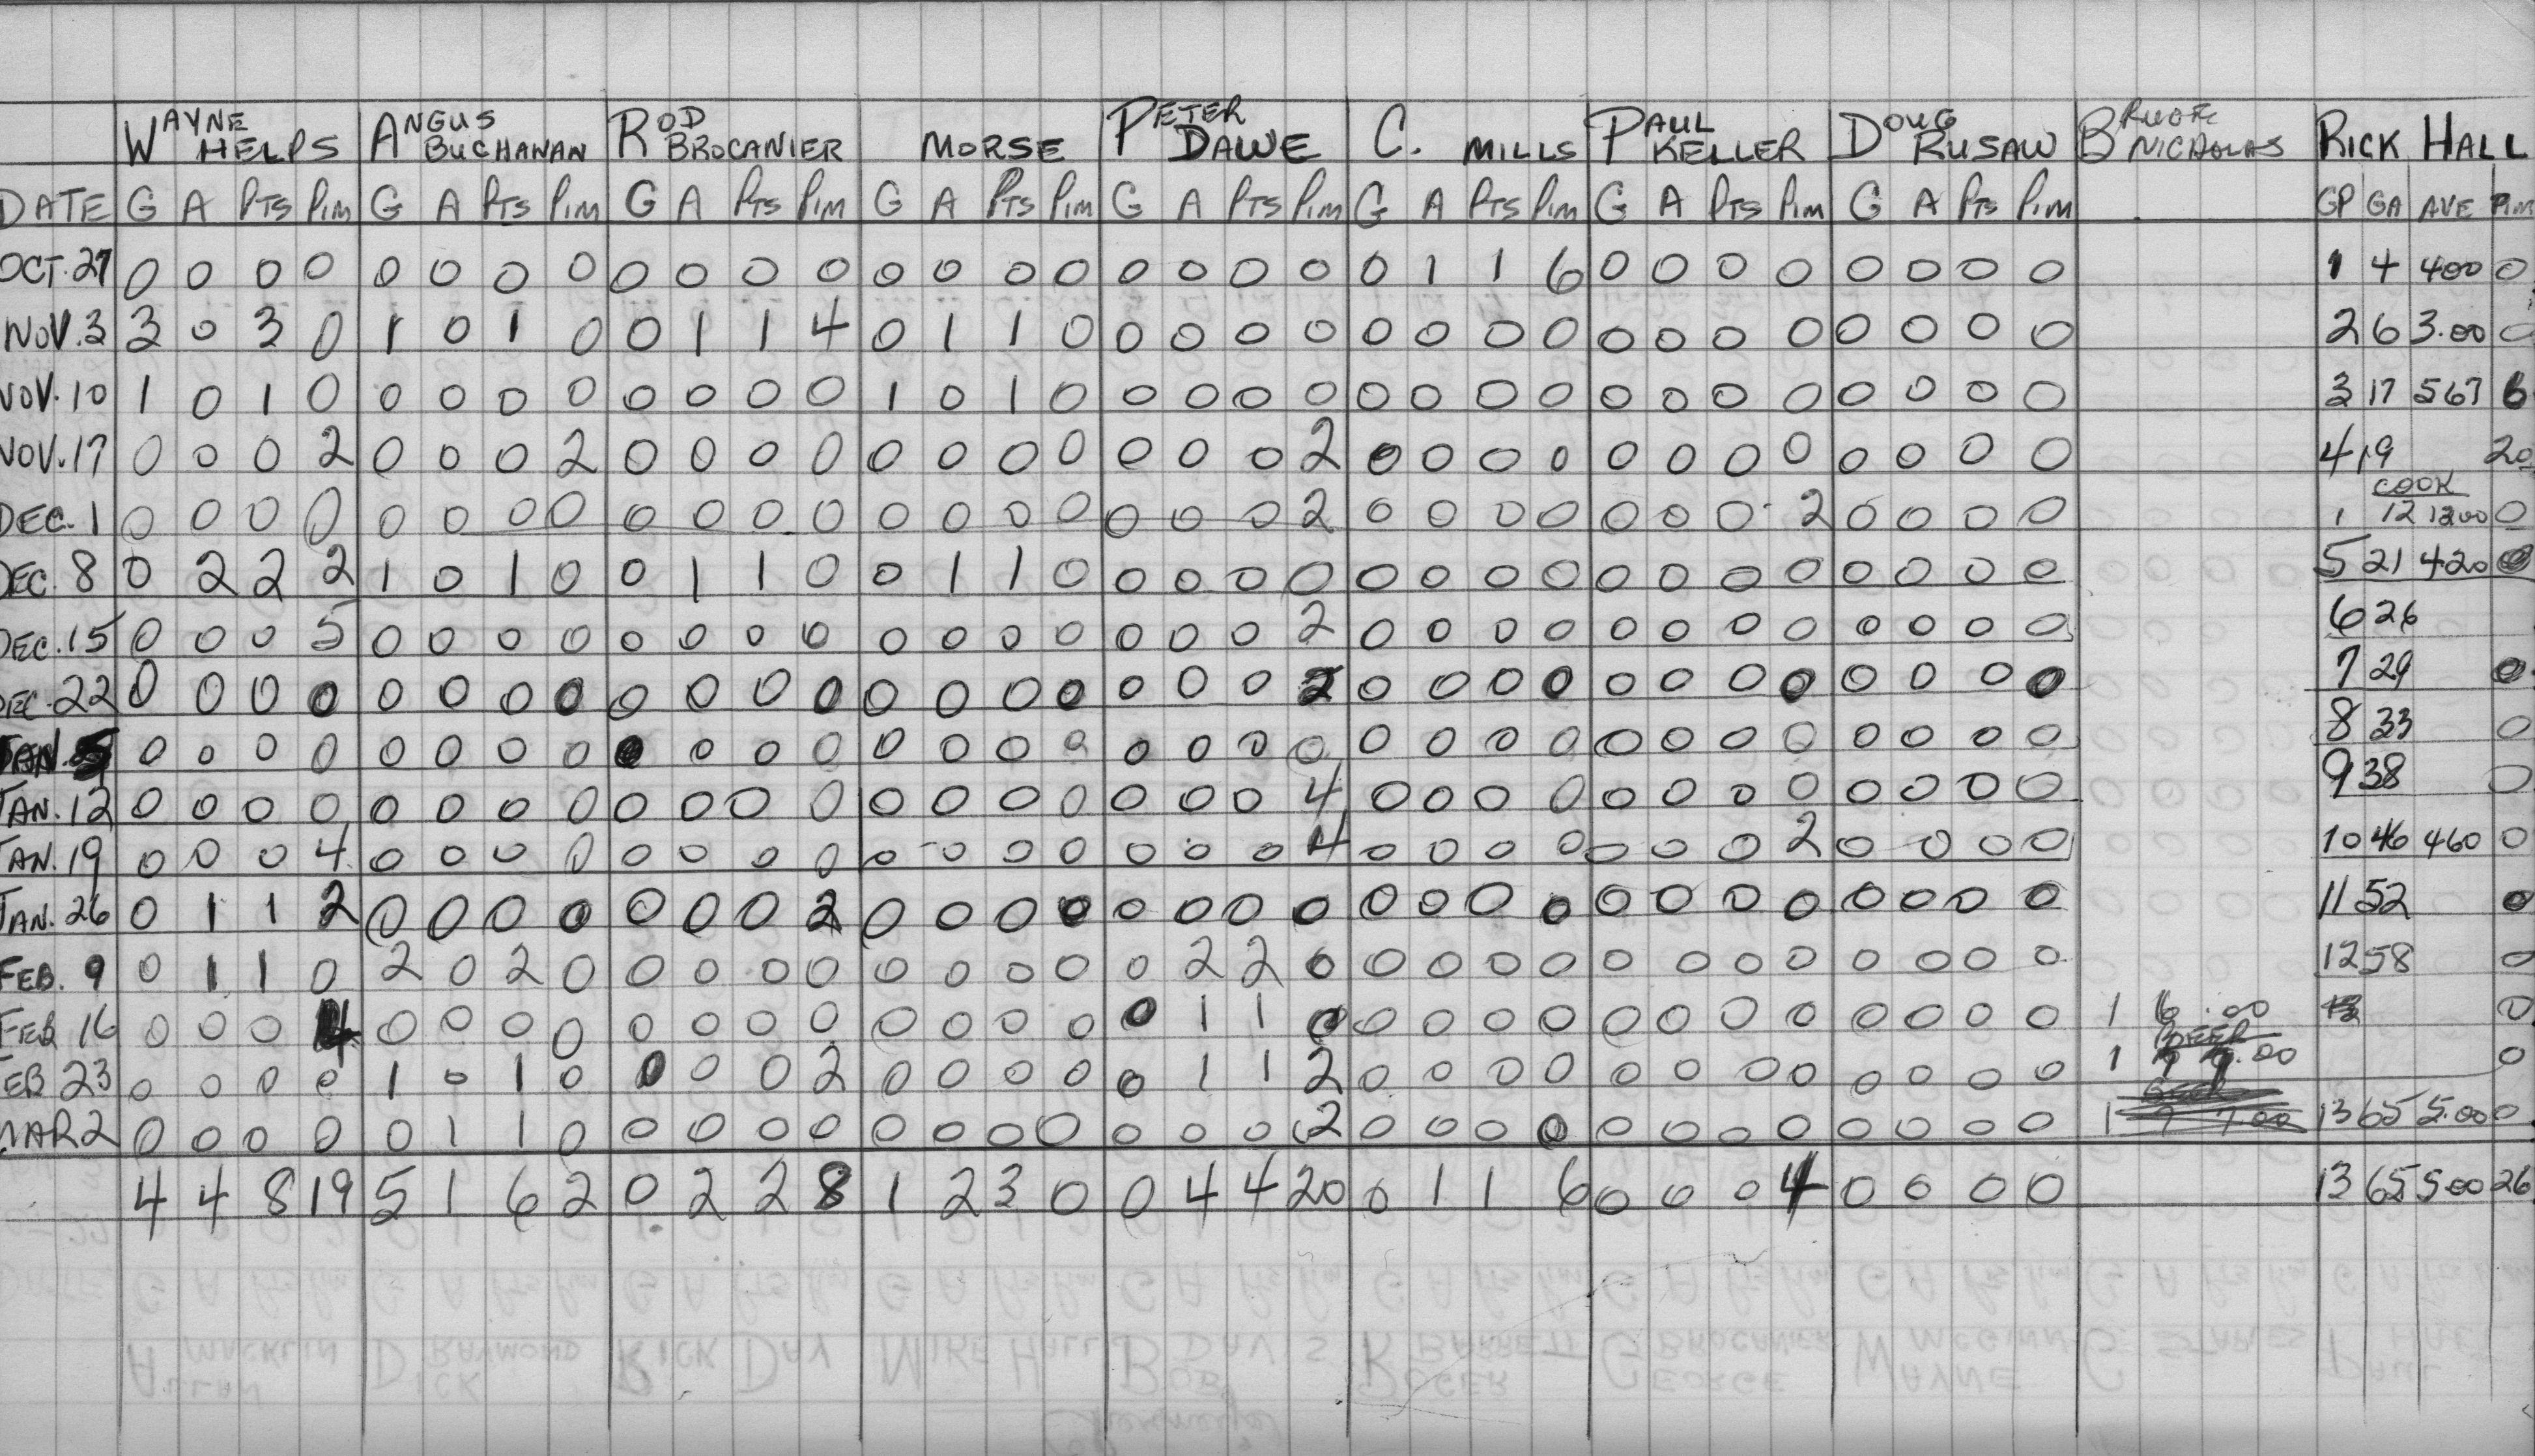 WAYNE HELPS ANGUS BUCHANAN ROD BROCANIER MORSE PETER DAWE C. MILLS PAUL KELLER DOUG RUSAW BRUCE NICHOLAS RICK HALL
DATE G A PTS PIM G A PTS PIM G A PTS PIM G A PTS PIM G A PTS PIM G A PTS PIM G A PTS PIM G A PTS PIM GP GA AVE PIM
OCT. 27 0 0 0 0 0 0 0 0 0 0 0 0 0 0 0 0 0 0 0 0 0 1 1 6 0 0 0 0 0 0 0 0 1 4 400 0
NOV. 3 3 0 3 0 1 0 1 0 0 1 1 4 0 1 1 0 0 0 0 0 0 0 0 0 0 0 0 0 0 0 0 0 2 6 3.00 0
NOV. 10 1 0 1 0 0 0 0 0 0 0 0 0 1 0 1 0 0 0 0 0 0 0 0 0 0 0 0 0 0 0 0 0 3 17 567 6
NOV. 17 0 0 0 2 0 0 0 2 0 0 0 0 0 0 0 0 0 0 0 2 0 0 0 0 0 0 0 0 0 0 0 0 4 19 20
COOK
DEC. 1 0 0 0 0 0 0 0 0 0 0 0 0 0 0 0 0 0 0 0 2 0 0 0 0 0 0 0 2 0 0 0 0 1 12 1200 0
DEC. 8 0 2 2 2 1 0 1 0 0 1 1 0 0 1 1 0 0 0 0 0 0 0 0 0 0 0 0 0 0 0 0 0 5 21 420 0
DEC. 15 0 0 0 5 0 0 0 0 0 0 0 0 0 0 0 0 0 0 0 2 0 0 0 0 0 0 0 0 0 0 0 0 6 26
DEC. 22 0 0 0 0 0 0 0 0 0 0 0 0 0 0 0 0 0 0 0 2 0 0 0 0 0 0 0 0 0 0 0 0 7 29 0
JAN. 5 0 0 0 0 0 0 0 0 0 0 0 0 0 0 0 0 0 0 0 0 0 0 0 0 0 0 0 0 0 0 0 0 8 33 0
JAN. 12 0 0 0 0 0 0 0 0 0 0 0 0 0 0 0 0 0 0 0 4 0 0 0 0 0 0 0 0 0 0 0 0 9 38 0
JAN. 19 0 0 0 4 0 0 0 0 0 0 0 0 0 0 0 0 0 0 0 4 0 0 0 0 0 0 0 2 0 0 0 0 10 46 460 0
JAN. 26 0 1 1 2 0 0 0 0 0 0 0 2 0 0 0 0 0 0 0 0 0 0 0 0 0 0 0 0 0 0 0 0 11 52 0
FEB. 9 0 1 1 0 2 0 2 0 0 0 0 0 0 0 0 0 0 2 2 0 0 0 0 0 0 0 0 0 0 0 0 0 12 58 0
FEB 16 0 0 0 4 0 0 0 0 0 0 0 0 0 0 0 0 0 1 1 0 0 0 0 0 0 0 0 0 0 0 0 0 1 6 .00 0
FEB 23 0 0 0 0 1 0 1 0 0 0 0 2 0 0 0 0 0 1 1 2 0 0 0 0 0 0 0 0 0 0 0 0 1 7 7.00 0
MAR 2 0 0 0 0 0 1 1 0 0 0 0 0 0 0 0 0 0 0 0 2 0 0 0 0 0 0 0 0 0 0 0 0 1 7 7.00 13 65 5.00 0
4 4 8 19 5 1 6 2 0 2 2 8 1 2 3 0 0 4 4 20 0 1 1 6 0 0 0 4 0 0 0 0 13 65 500 26